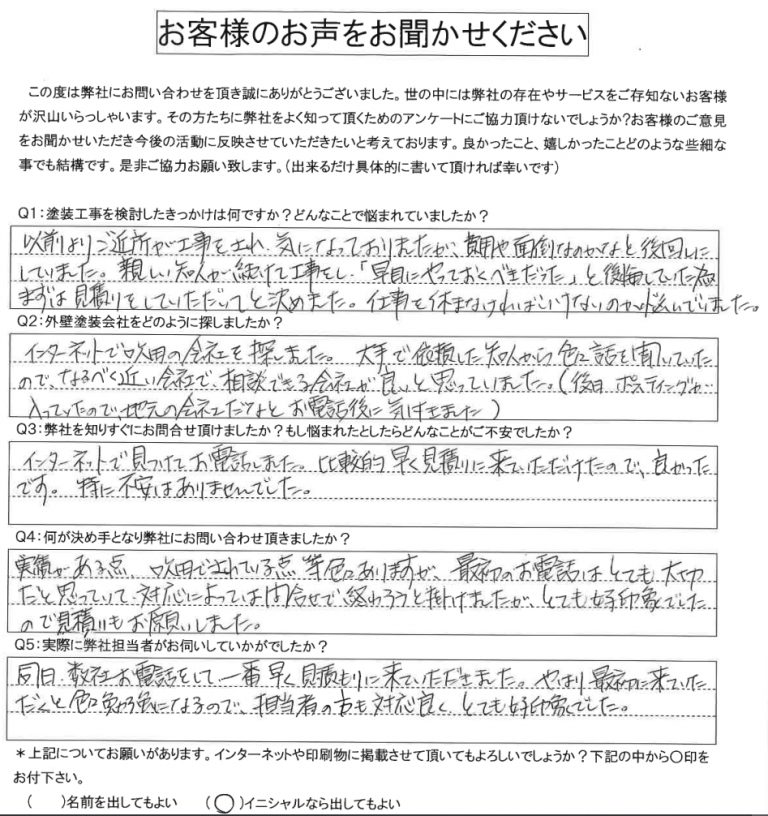 お客様のお声をお聞かせください
この度は弊社にお問い合わせを頂き誠にありがとうございました。世の中には弊社の存在やサービスをご存知ないお客様
が沢山いらっしゃいます。その方たちに弊社をよく知って頂くためのアンケートにご協力頂けないでしょうか?お客様のご意見
をお聞かせいただき今後の活動に反映させていただきたいと考えております。良かったこと、嬉しかったことどのような些細な
事でも結構です。是非ご協力お願い致します。(出来るだけ具体的に書いて頂ければ幸いです)
Q1:塗装工事を検討したきっかけは何ですか?どんなことで悩まれていましたか?
以前よりご近所が工事をされ、気になっておりましたが、費用や面倒なのかなと後回しに
していました。親しい知人が続けて工事をし、「早目にやっておくべきだった」と後悔していた為
まずは見積りをしていただいてと決めました。仕事を休まなければいけないのかが悩いでいました。
Q2:外壁塗装会社をどのように探しましたか?
インターネットで吹田の会社を探しました。大手で依頼した知人から色々話を聞いていた
ので、なるべく近い会社で、相談できる会社が良いと思っていました。(後日 ポスティングが
入っていたので、地元の会社だなとお電話後に気付きました)
Q3:弊社を知りすぐにお問合せ頂けましたか?もし悩まれたとしたらどんなことがご不安でしたか?
インターネットで見つけてお電話しました。比較的早く見積りに来ていただけたので、良かった
です。特に不安はありませんでした。
Q4:何が決め手となり弊社にお問い合わせ頂きましたか?
実績がある点、吹田でされている点等色々ありますが、最初のお電話はとても大切
だと思っていて、対応によっては問合せで終わろうと掛けましたが、とても好印象でした
ので見積りもお願いしました。
Q5:実際に弊社担当者がお伺いしていかがでしたか?
同日、数社お電話をして一番早く見積もりに来ていただきました。やはり最初に来ていた
だくと色々勉強になるので、担当者の方も対応良く、とても好印象でした。
*上記についてお願いがあります。インターネットや印刷物に掲載させて頂いてもよろしいでしょうか?下記の中から〇印を
お付下さい。
( )名前を出してもよい (〇)イニシャルなら出してもよい